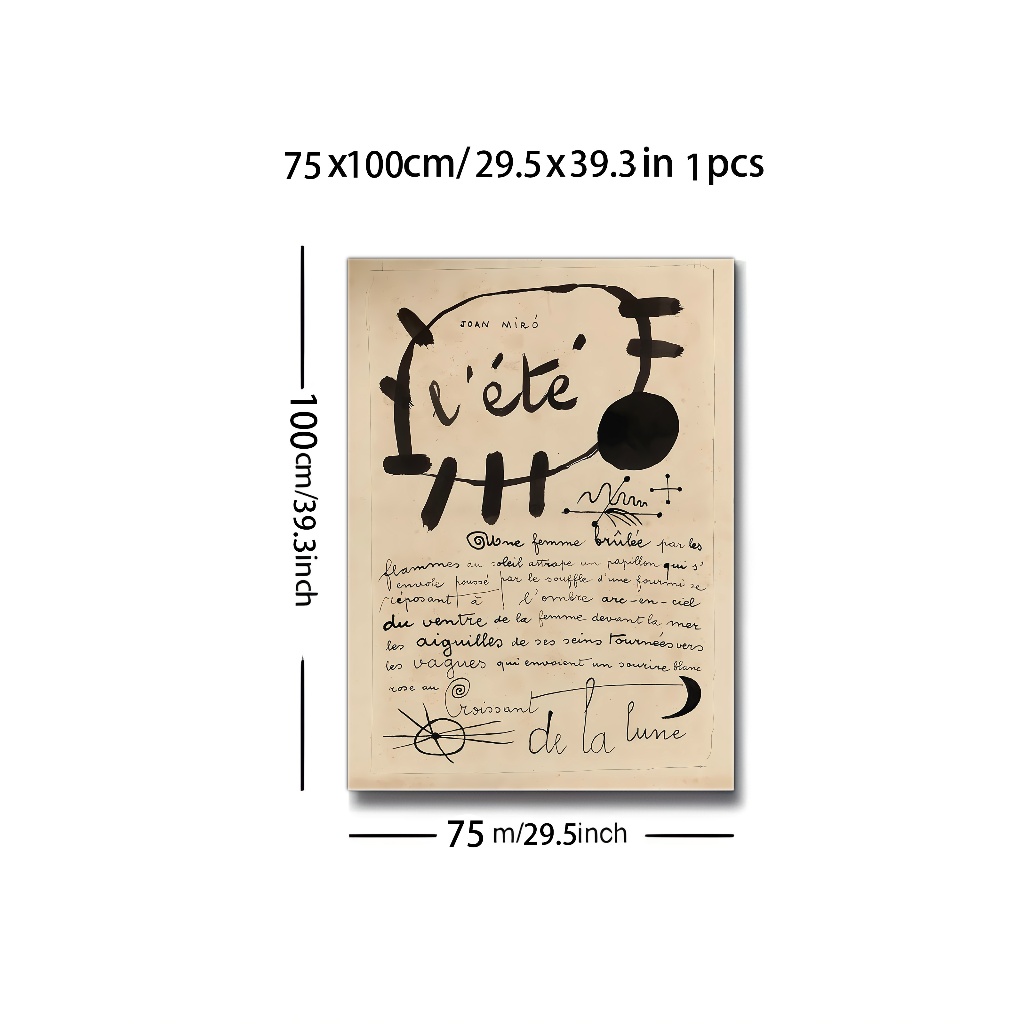 75x100cm/ 29.5x39.3in 1pcs
JOAN MIRÓ
l'été
Une femme brûlée par les
flammes au soleil attrape un papillon qui s'
envole poussé par le souffle d'une fourmi se
réposant à l'ombre arc-en-ciel
du ventre de la femme devant la mer
les aiguilles de ses seins tournées vers
les vagues qui envoient un sourire blanc
rose au Croissant
de la lune
100cm/39.3inch
75 m/29.5inch